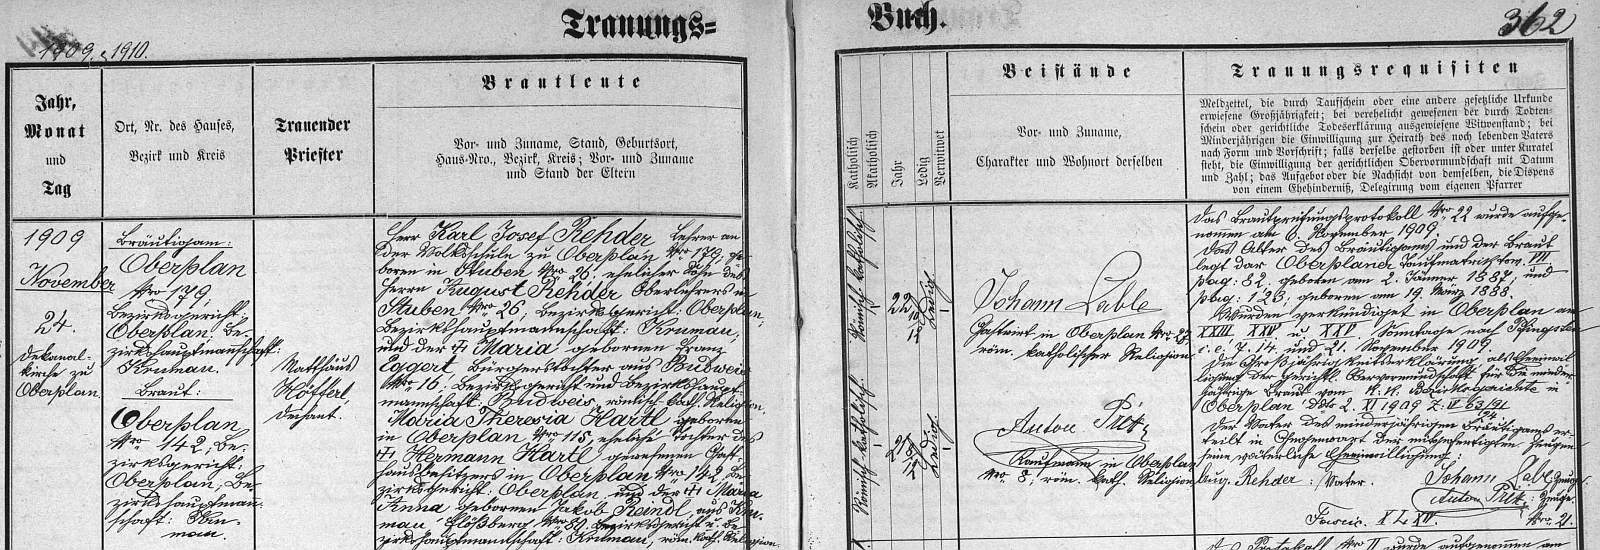 Trauungs=
Buch.
362
1909. 1910.
Jahr,
Monat
und
Tag
Ort, Nr. des Hauses,
Bezirk und Kreis
Trauender
Priester
Brautleute
Vor- und Zuname, Stand, Geburtsort,
Haus-Nro., Bezirk, Kreis; Vor- und Zuname
und Stand der Eltern
Katholisch
Akatholisch
Jahr
Ledig
Verwitwet
Beistände
Vor- und Zuname,
Charakter und Wohnort derselben
Trauungsrequisiten
Meldzettel, die durch Taufschein oder eine andere gesetzliche Urkunde
erwiesene Großjährigkeit; bei verehelicht gewesenen der durch Todten-
schein oder gerichtliche Todeserklärung ausgewiesene Witwenstand; bei
Minderjährigen die Einwilligung zur Heirath des noch lebenden Vaters
nach Form und Vorschrift; falls derselbe gestorben ist oder unter Kuratel
steht, die Einwilligung der gerichtlichen Obervormundschaft mit Datum
und Zahl; das Aufgebot oder die Nachsicht von demselben, die Dispens
von einem Ehehinderniß, Delegirung vom eigenen Pfarrer
1909
November
24.
Dekanal-
kirche zu
Oberplan.
Bräutigam:
Oberplan
Nro 179,
Bezirksgericht:
Oberplan, Be-
zirkshauptmannschaft:
Krumau.
Braut:
Oberplan
Nro 142, Be-
zirksgericht:
Oberplan, Be-
zirkshauptman-
schaft: Kru-
mau.
Matthäus
Höfferl,
Dechant.
Herr Karl Josef Rehder Lehrer an
der Volksschule zu Oberplan Nro 179, ge-
boren in Stuben Nro 26, ehelicher Sohn des
Herrn August Rehder Oberlehrers in
Stuben Nro 26, Bezirksgericht: Oberplan,
Bezirkshauptmannschaft: Krumau,
und der Maria gebornen Franz
Eggert, Bürgerstochter aus Budweis
Nro 16: Bezirksgericht und Bezirkshaupt-
mannschaft: Budweis, römisch-kath. Religion.
Maria Theresia Hartl geboren
in Oberplan Nro 115, eheliche Tochter des
Hermann Hartl gewesenen Gast-
hausbesitzers in Oberplan Nro 142, Be-
zirksgericht: Oberplan und der Maria
Anna gebornen Jakob Randl, aus Kru-
mau, Flößberg Nro 80, Bezirksgericht u. Be-
zirkshauptmannschaft: Krumau, röm. kath. Religion.
Römisch katholisch.
22
Ledig
Römisch katholisch.
21
Ledig
Johann Lable
Gastwirt in Oberplan Nro
röm. katholischer Religion
Anton Pitz
Kaufmann in Oberplan
Nro 8, röm. kath. Religion
Das Brautprüfungsprotokoll Nro 22 wurde aufge-
nomen am 6. November 1909.
Das Alter des Bräutigams und der Braut
legt dar Oberplaner Taufmatrik tom. VII
pag: 82, geboren am 2. Jänner 1887, und
pag: 123, geboren am 19. März 1888.
Wurden verkündiget in Oberplan am
XXIII XXIV u. XXV Sonntage nach Pfingsten
i. e. 7. 14. und 21. November 1909.
Die Großjährigkeitserklärung als Einwil
ligung der gerichtl. Obervormundschaft für die minder
jährige Braut vom K. K. Bezirksgerichte in
Oberplan ddo 2. XI 1909
Der Vater des minderjährigen Bräutigams er-
teilt in Gegenwart der mitgefertigten Zeugen
seine väterliche Einwilligung:
Aug. Rehder: Vater.
Johann Lable Zeuge
Anton Pitz: Zeuge.